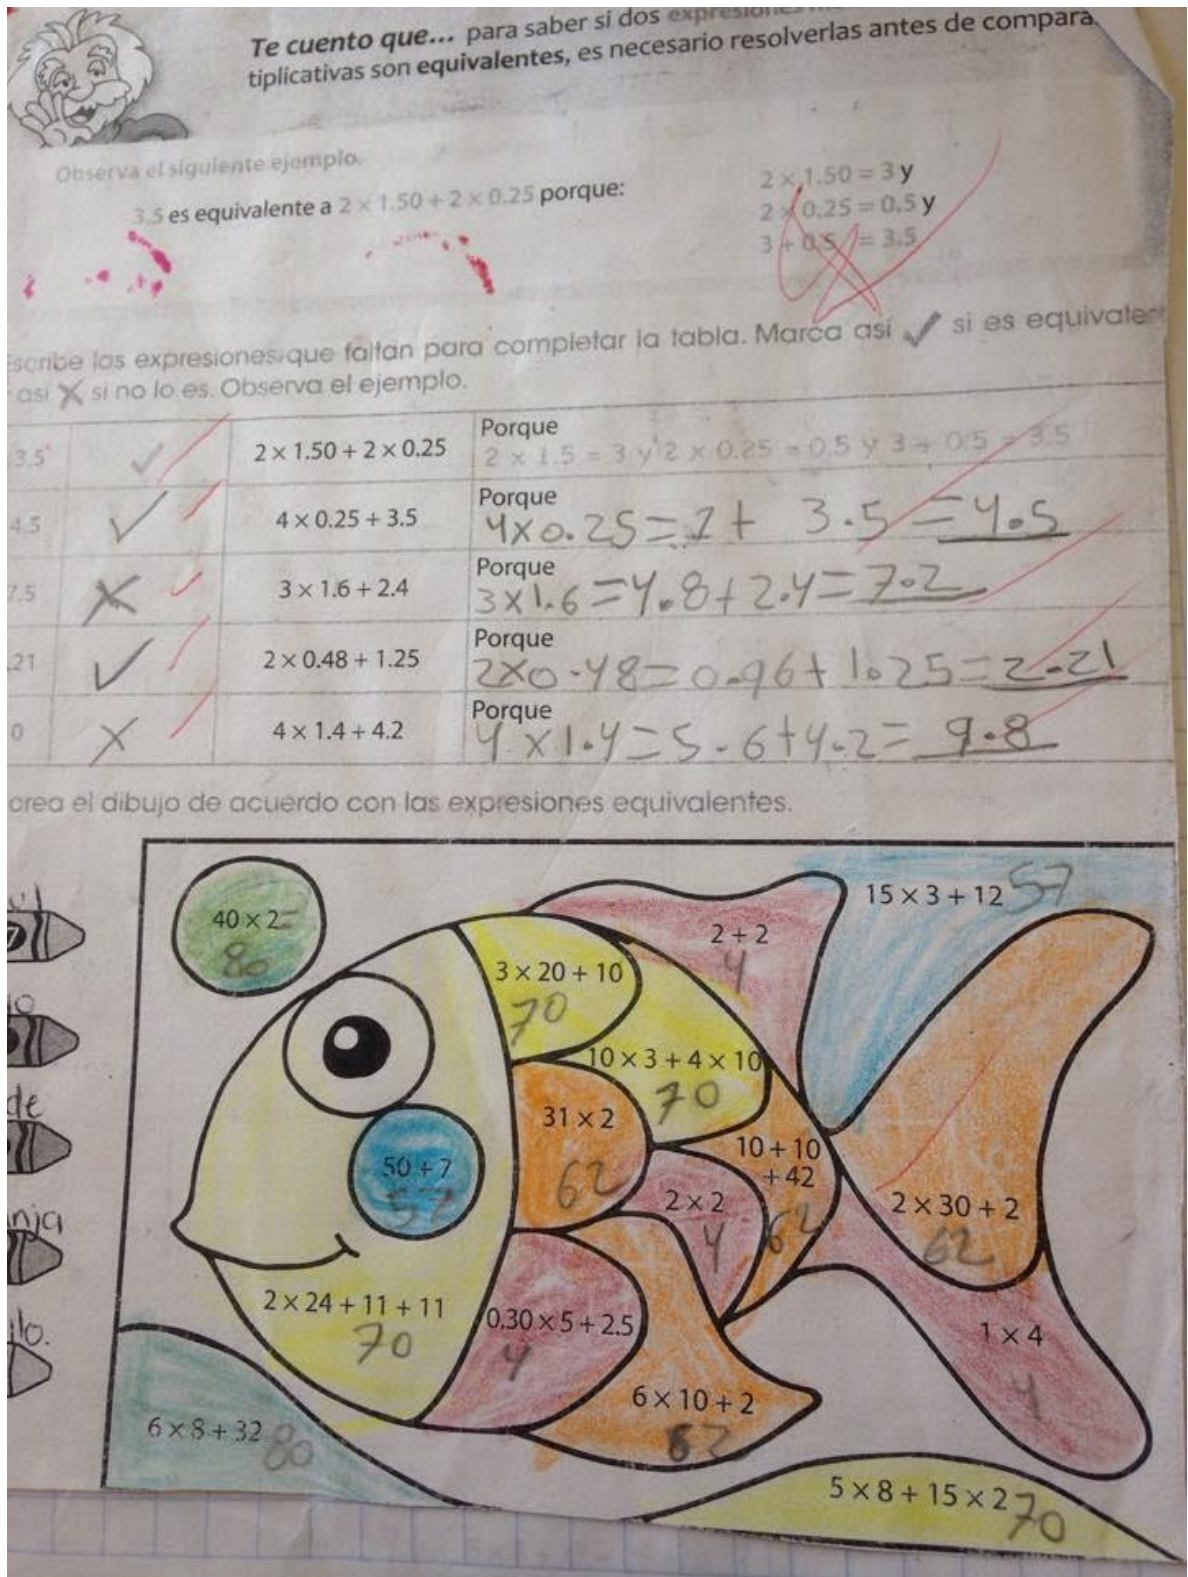 Te cuento que... para saber si dos expresiones
tiplicativas son equivalentes, es necesario resolverlas antes de compara
Observa el siguiente ejemplo.
3.5 es equivalente a 2 × 1.50 + 2 × 0.25 porque:
2 × 1.50 = 3 y
2 × 0.25 = 0.5 y
3 + 0.5 = 3.5
scribe las expresiones que faltan para completar la tabla. Marca así ✓ si es equivalent
así X si no lo es. Observa el ejemplo.
3.5 ✓ 2 × 1.50 + 2 × 0.25 Porque
2 × 1.5 = 3 y 2 × 0.25 = 0.5 y 3 + 0.5 = 3.5
4.5 ✓ 4 × 0.25 + 3.5 Porque
4x0.25=1+ 3.5 =4.5
7.5 X 3 × 1.6 + 2.4 Porque
3x1.6=4.8+2.4=7.2
.21 ✓ 2 × 0.48 + 1.25 Porque
2x0.48=0.96+1.25=2.21
0 X 4 × 1.4 + 4.2 Porque
4x1.4=5.6+4.2=9.8
orea el dibujo de acuerdo con las expresiones equivalentes.
de
nja
llo.
40 × 2=
80
15 × 3 + 12 57
2 + 2
4
3 × 20 + 10
70
10 × 3 + 4 × 10
70
31 × 2
62
10 + 10
+ 42
62
50 + 7
57
2 × 2
4
2 × 30 + 2
62
2 × 24 + 11 + 11
70
0.30 × 5 + 2.5
4
1 × 4
4
6 × 10 + 2
62
6 × 8 + 32 80
5 × 8 + 15 × 2 70